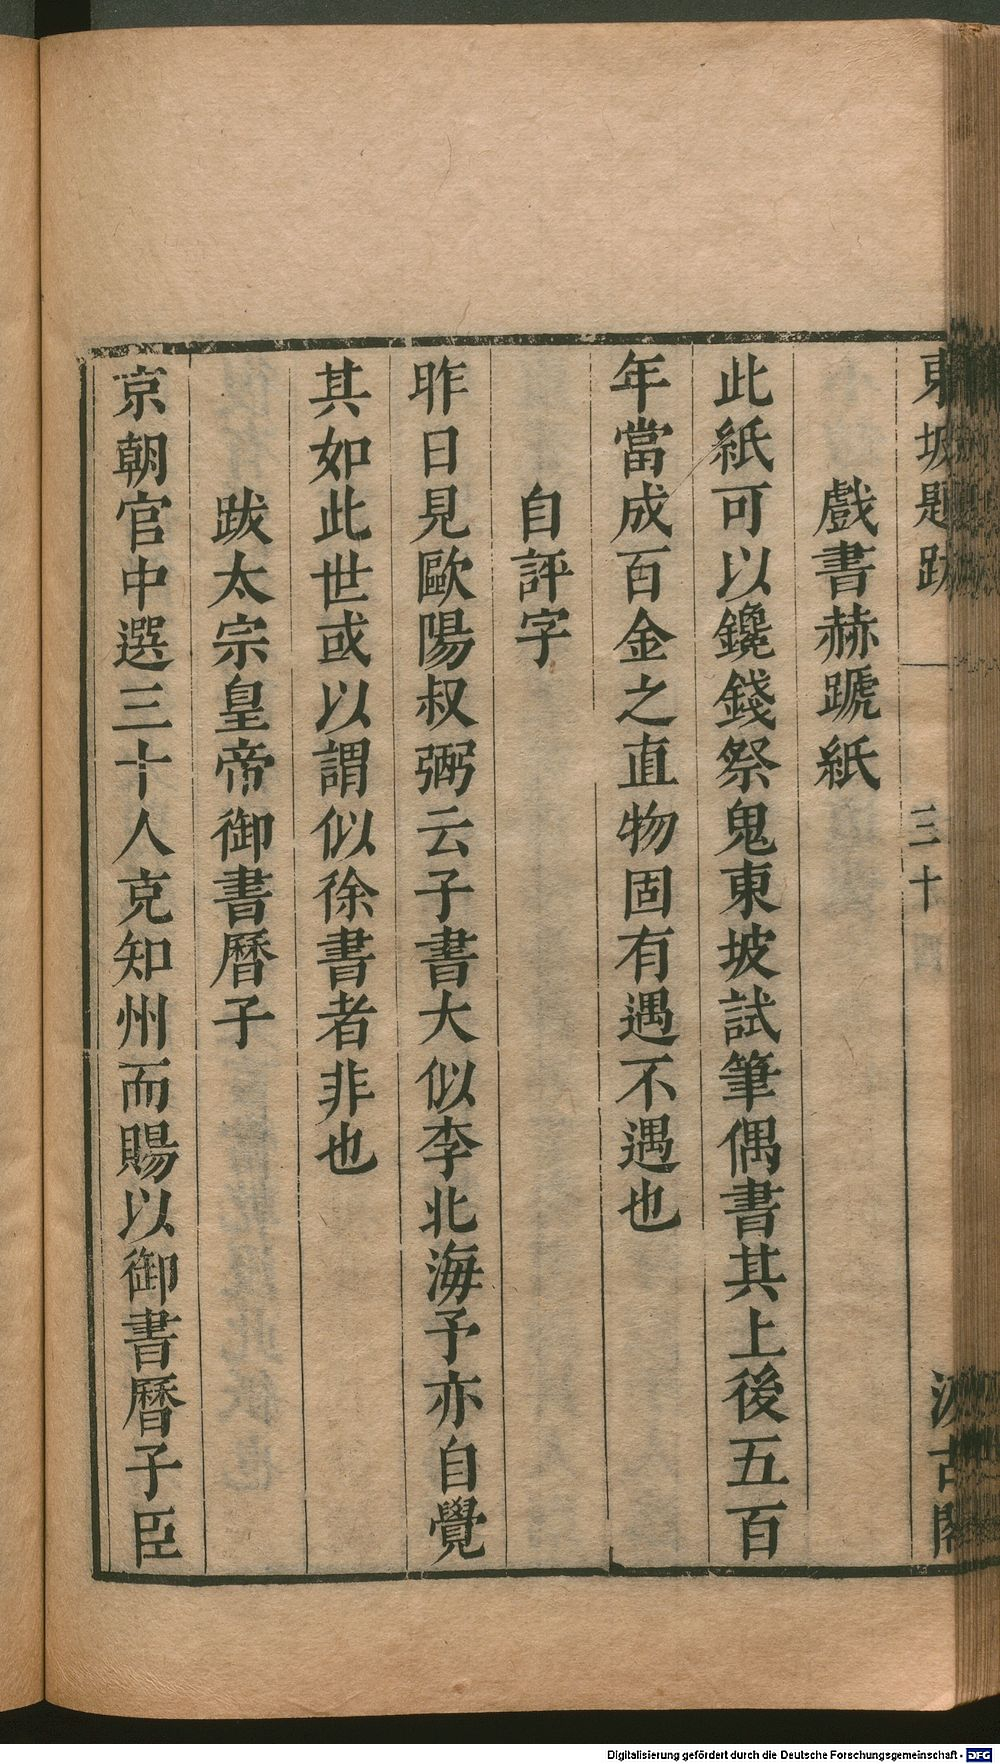 東坡題跋 一 三十四 汲古閣
戲書赫蹏紙
此紙可以鑱錢祭鬼東坡試筆偶書其上後五百
年當成百金之直物固有遇不遇也
自評字
昨日見歐陽叔弼云子書大似李北海予亦自覺
其如此世或以謂似徐書者非也
跋太宗皇帝御書曆子
京朝官中選三十人克知州而賜以御書曆子臣
Digitalisierung gefördert durch die Deutsche Forschungsgemeinschaft - DFG